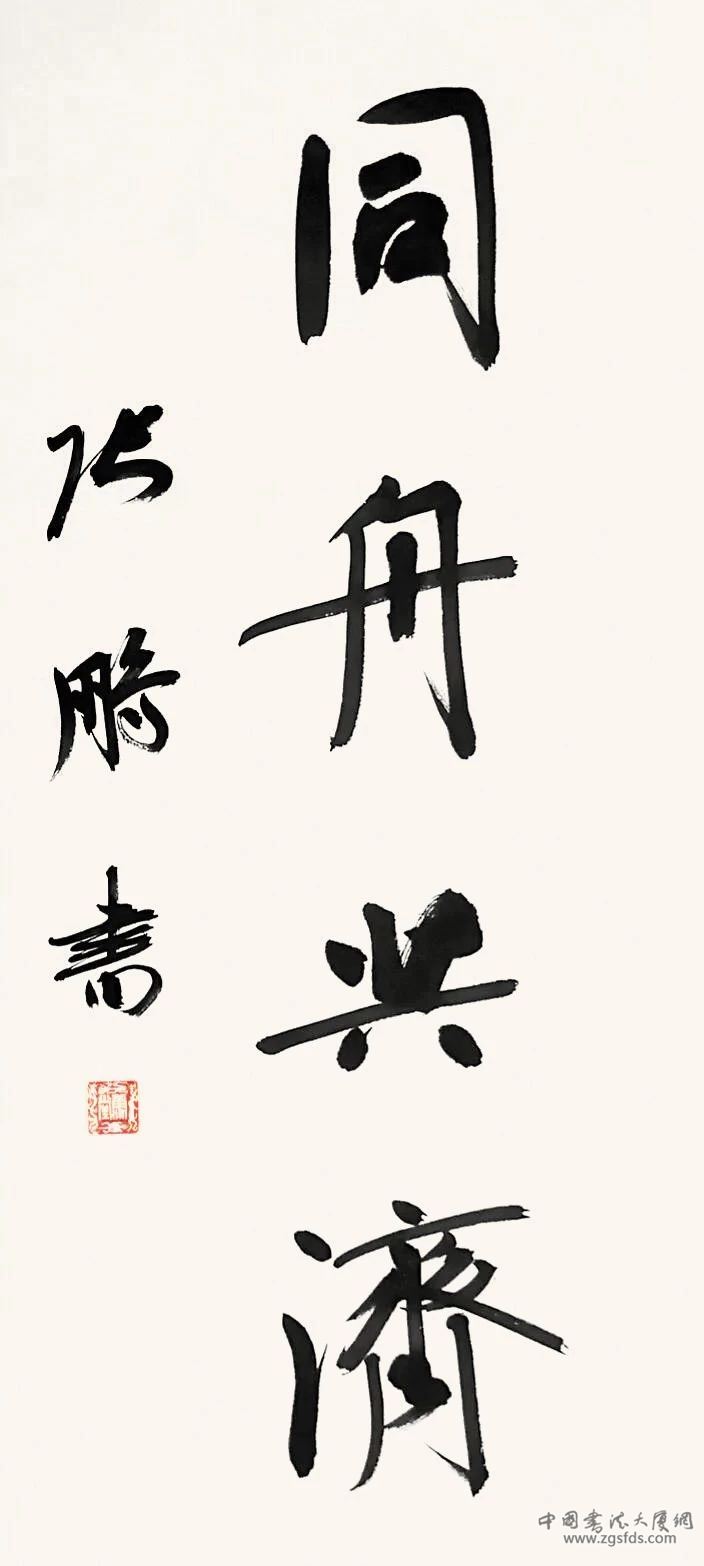 同舟共濟
张鵬書
中國書法大廈網
www.zgsfds.com